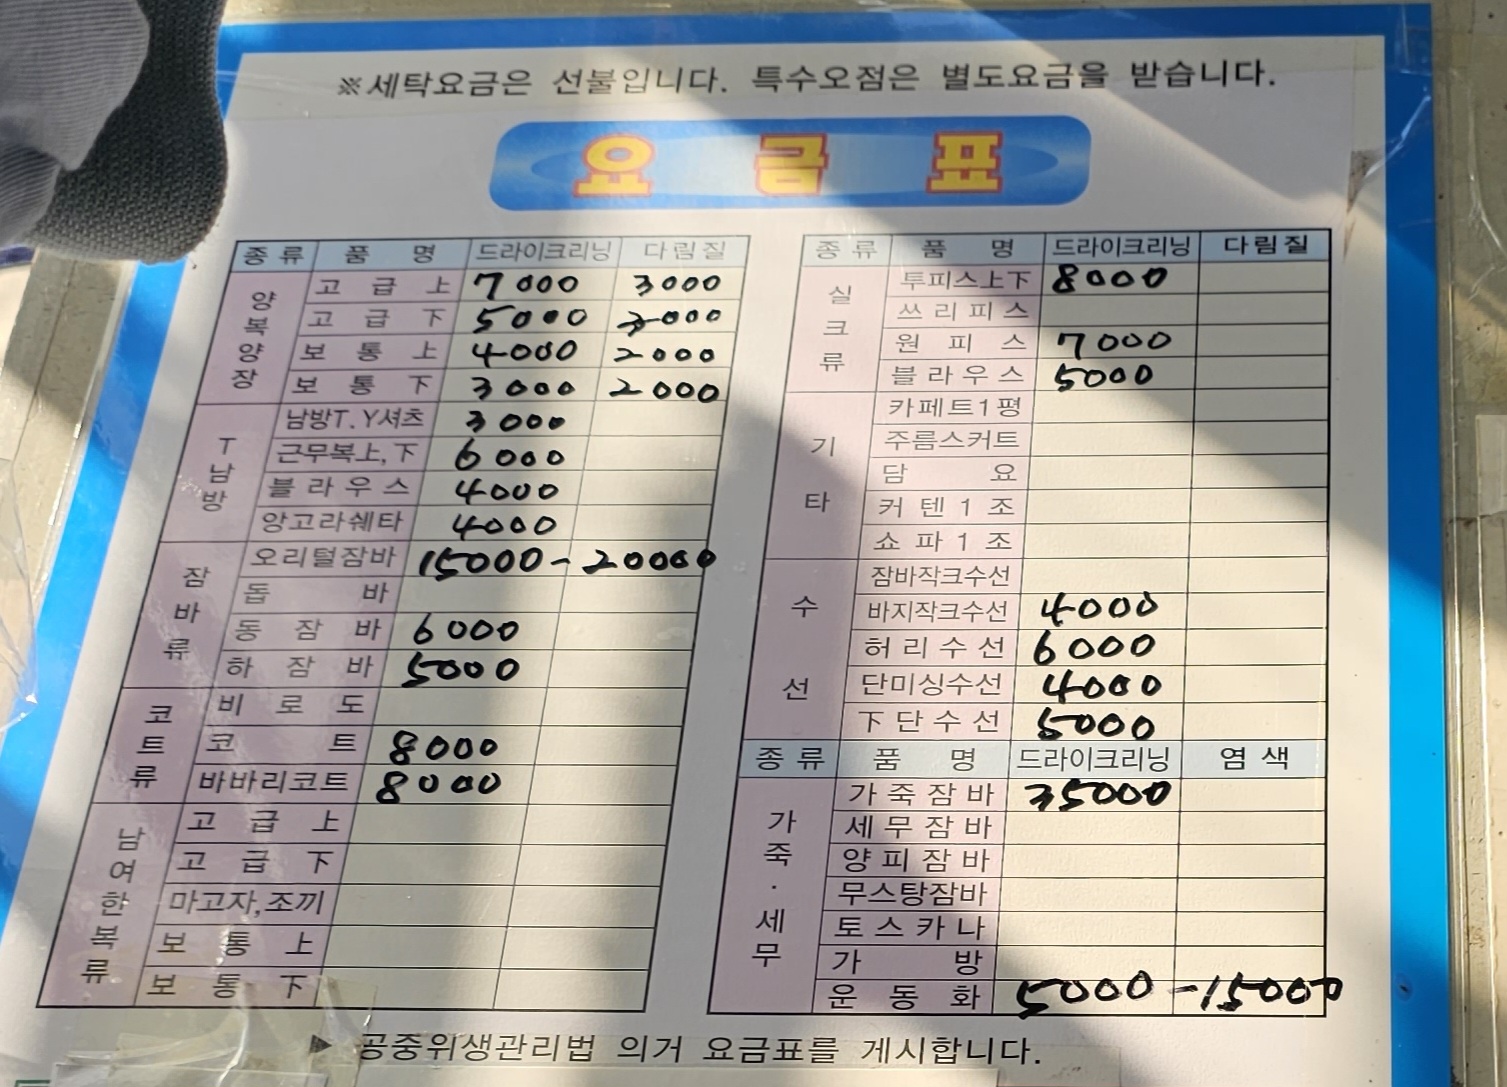 ※세탁요금은 선불입니다. 특수오점은 별도요금을 받습니다.
요 금 표
종류 품 명 드라이크리닝 다림질
양복양장
고 급 上 7000 3000
고 급 下 5000 3000
보 통 上 4000 2000
보 통 下 3000 2000
T남방
남방T.Y셔츠 3000
근무복上,下 6000
블라우스 4000
앙고라쉐타 4000
잠바류
오리털잠바 15000-20000
돕 바
동 잠 바 6000
하 잠 바 5000
코트류
비 로 도
코 트 8000
바바리코트 8000
남여한복류
고 급 上
고 급 下
마고자,조끼
보 통 上
보 통 下
종류 품 명 드라이크리닝 다림질
실크류
투피스上下 8000
쓰리피스
원 피 스 7000
블라우스 5000
기타
카페트1평
주름스커트
담 요
커텐1조
쇼파1조
수선
잠바작크수선
바지작크수선 4000
허리수선 6000
단미싱수선 4000
下단수선 5000
종류 품 명 드라이크리닝 염색
가죽·세무
가죽잠바 35000
세무잠바
양피잠바
무스탕잠바
토스카나
가 방
운 동 화 5000-15000
▶ 공중위생관리법 의거 요금표를 게시합니다.